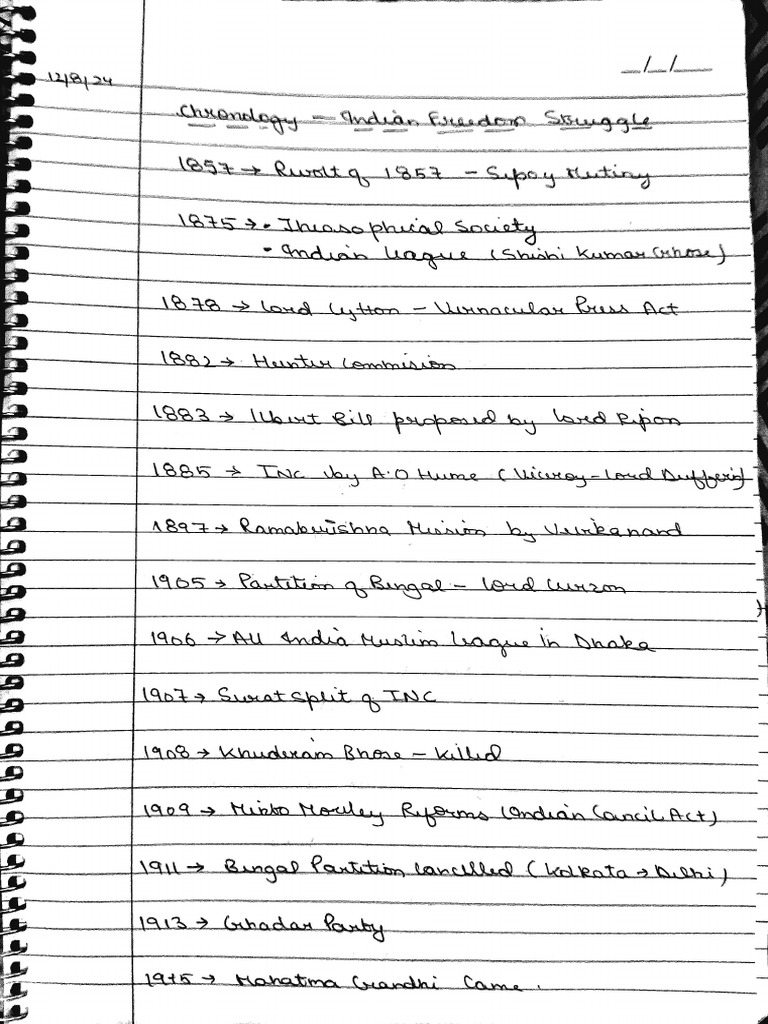 __/__/____
12/8/24
Chronology - Indian Freedom Struggle
1857 → Revolt of 1857 - Sepoy Mutiny
1875 → • Theosophical Society
• Indian League (Shishi Kumar Ghose)
1878 → Lord Lytton - Vernacular Press Act
1882 → Hunter Commision
1883 → Ilbert Bill proposed by Lord Ripon
1885 → INC by A.O Hume (Viceroy - Lord Dufferin)
1897 → Ramakrishna Mission by Vivekanand
1905 → Partition of Bengal - Lord Curzon
1906 → All India Muslim League in Dhaka
1907 → Surat Split of INC
1908 → Khuderam Bhose - Killed
1909 → Minto Morley Reforms (Indian Council Act)
1911 → Bengal Partition Cancelled (Kolkata → Delhi)
1913 → Ghadar Party
1915 → Mahatma Gandhi Came.